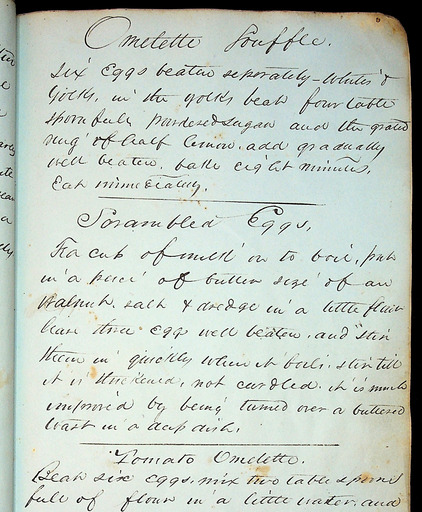 Omelette Souffle.
Six Eggs beaten seperately - Whites &
Yolks, in the yolks beat four table
spoonfuls powdered sugar and the grated
ring of half lemon, add gradually
well beaten, bake eight minutes,
Eat immediately.
Scrambled Eggs,
Tea cup of milk on to boil, put
in a piece of butter size of an
Walnut, salt & dredge in a little flour
have three eggs well beaten, and stir
them in quickly when it boils, stir till
it is thickened, not curdled. it is much
improved by being turned over a buttered
toast in a deep dish.
Tomato Omelette.
Beat six eggs, mix two table spoons
full of flour in a little water, and